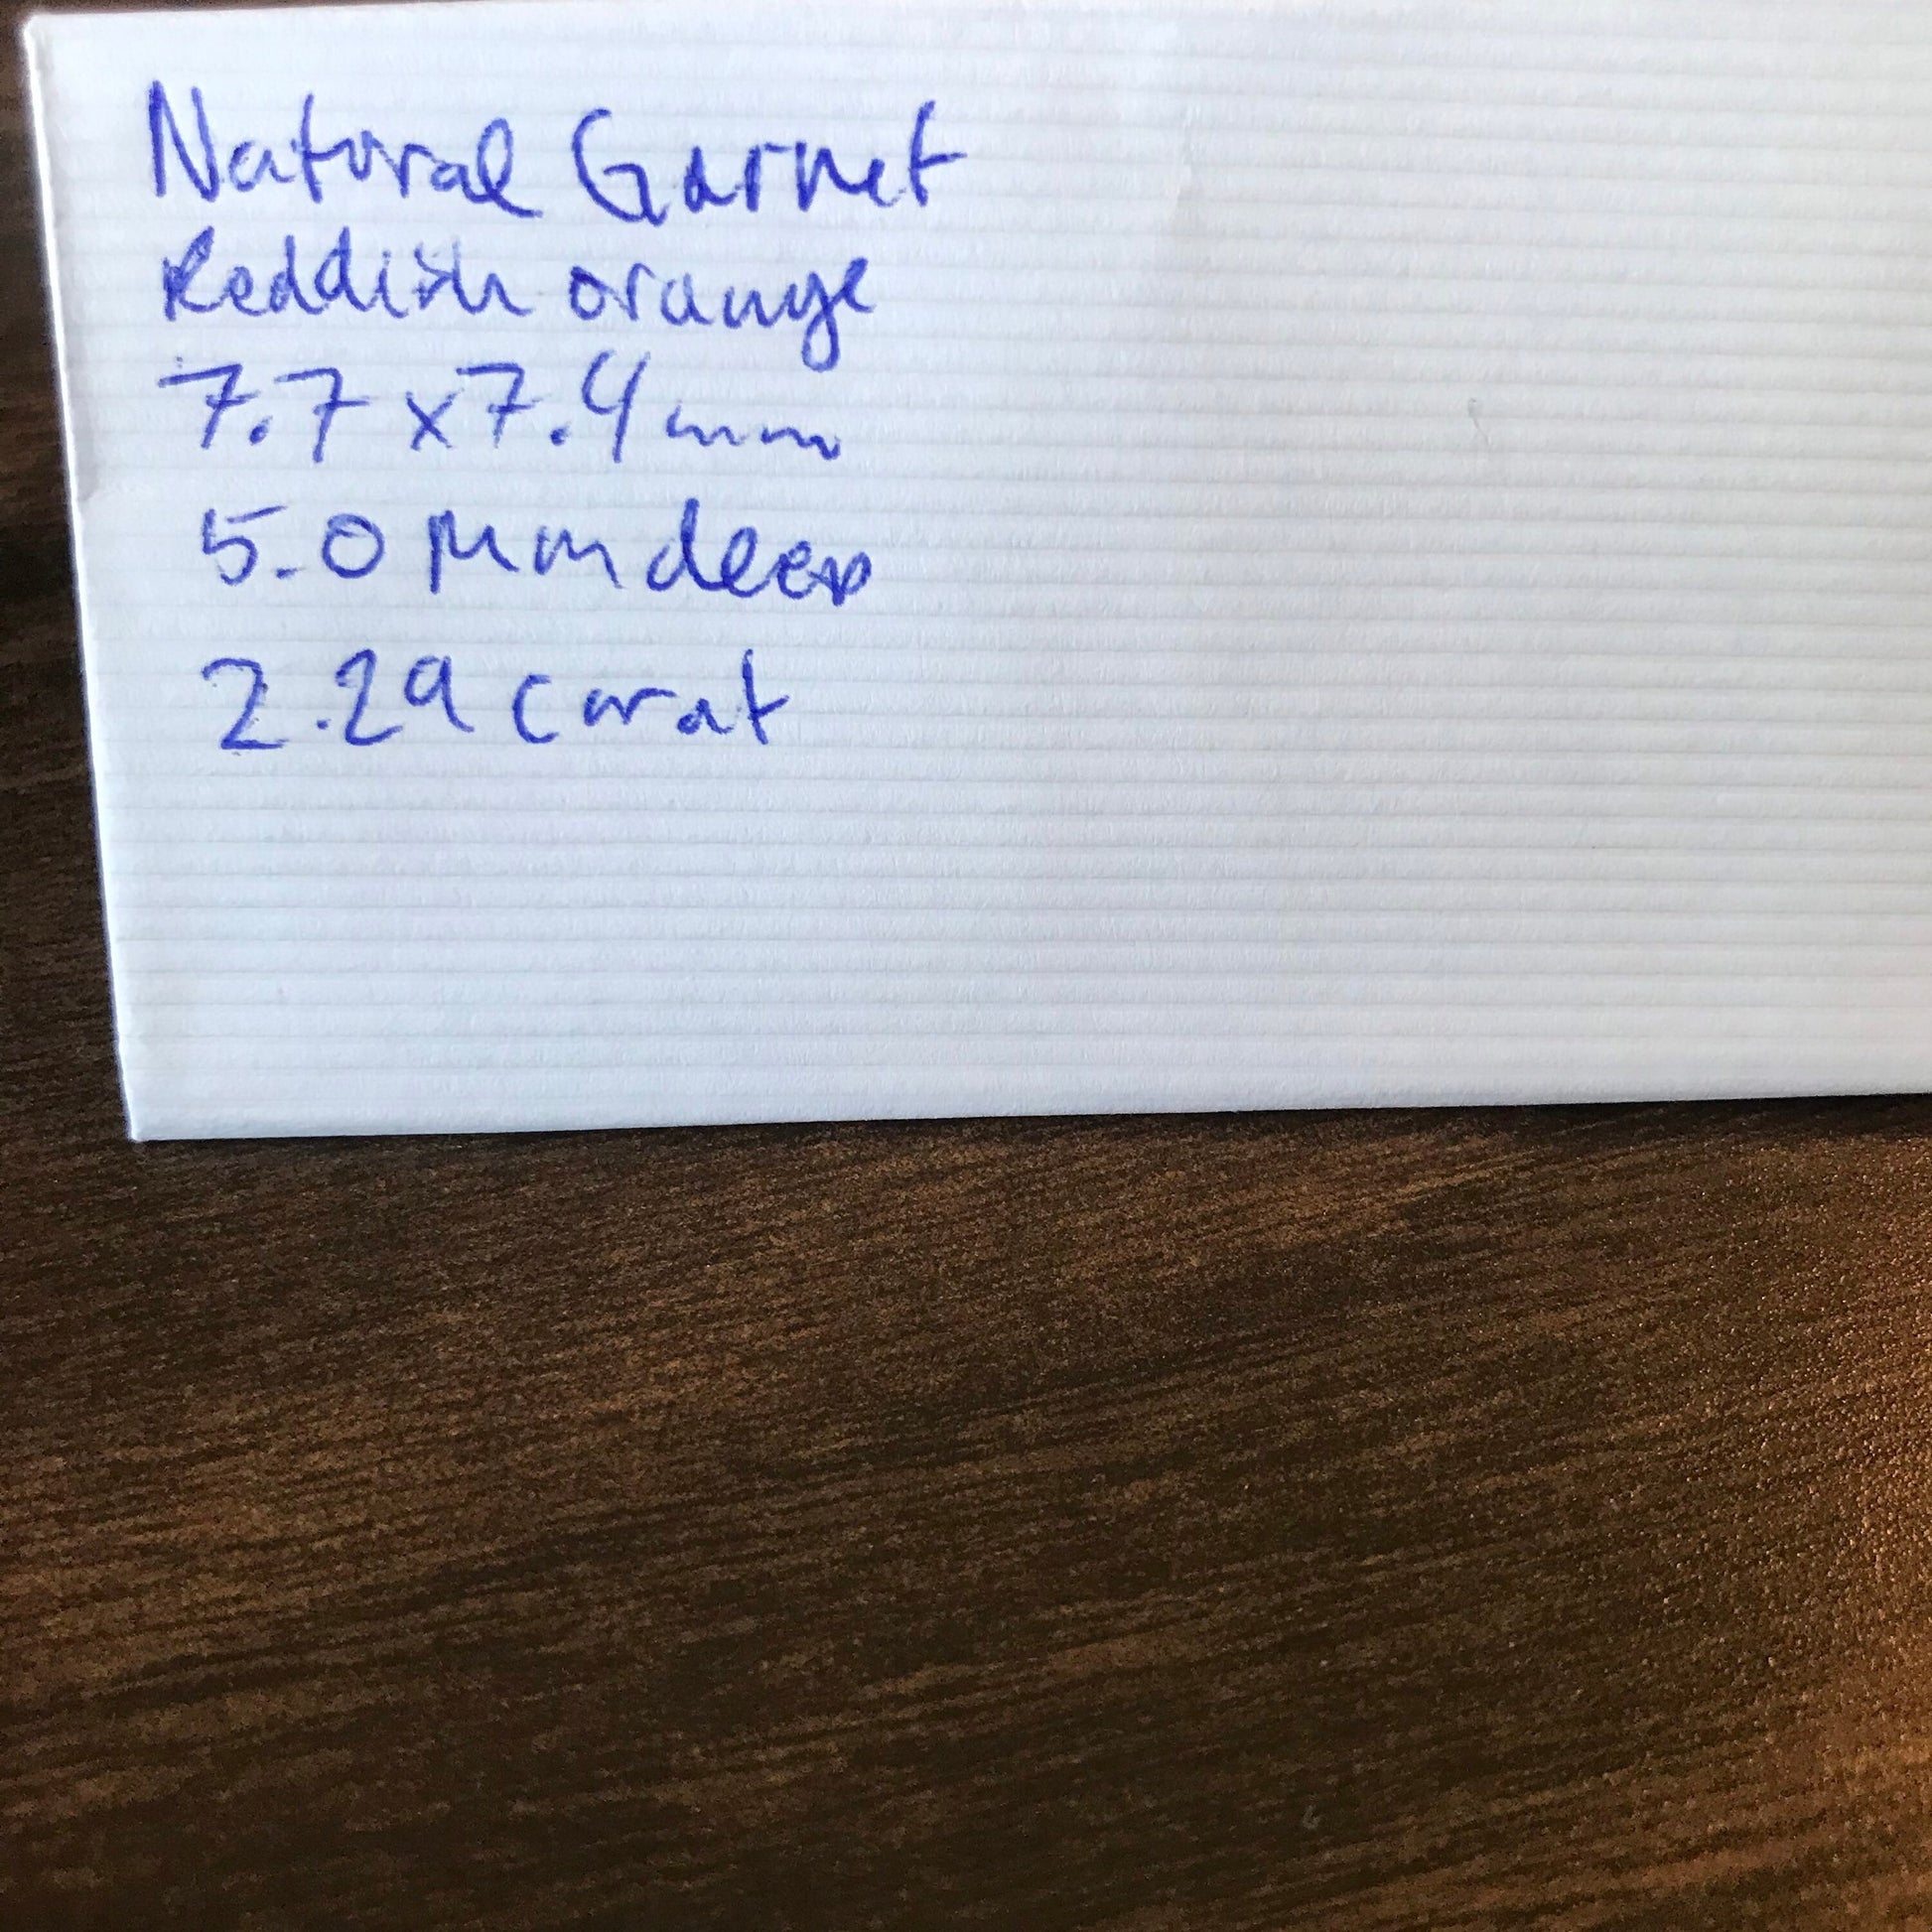 Natural Garnet
Reddish orange
7.7 x 7.4 mm
5.0 mm deep
2.29 carat